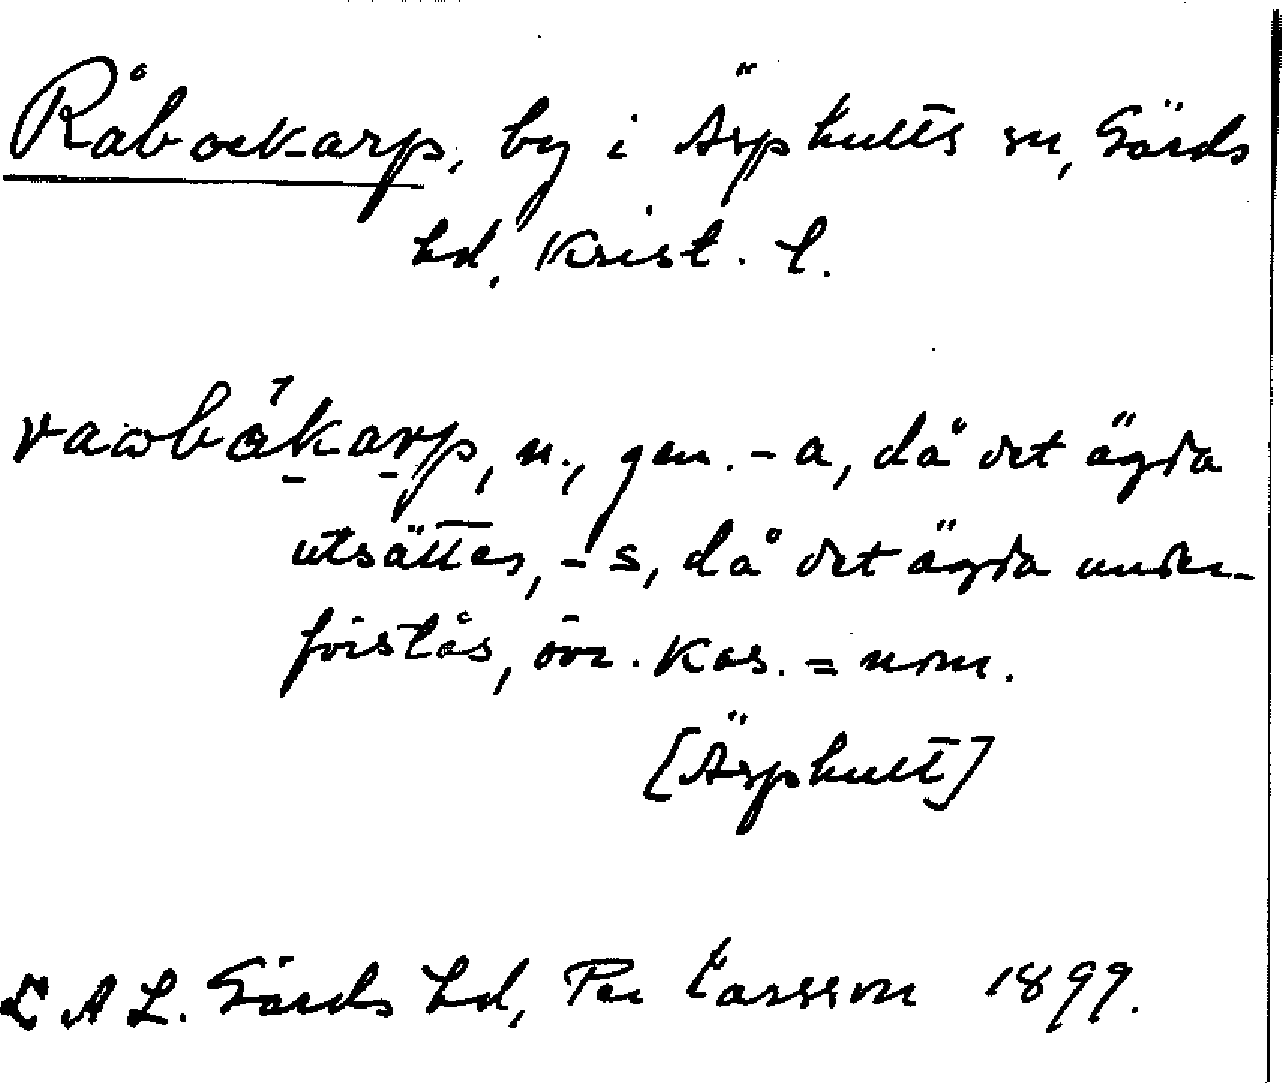 Råbockarp, by i Äsphults sn, Gärds
hd, Krist. l.
n., gen. -a, då det ägda
utsättes, -s, då det ägda under-
förstås, övr. kas. = nom.
[Äsphult]
LAL. Gärds hd, Per Larsson 1899.